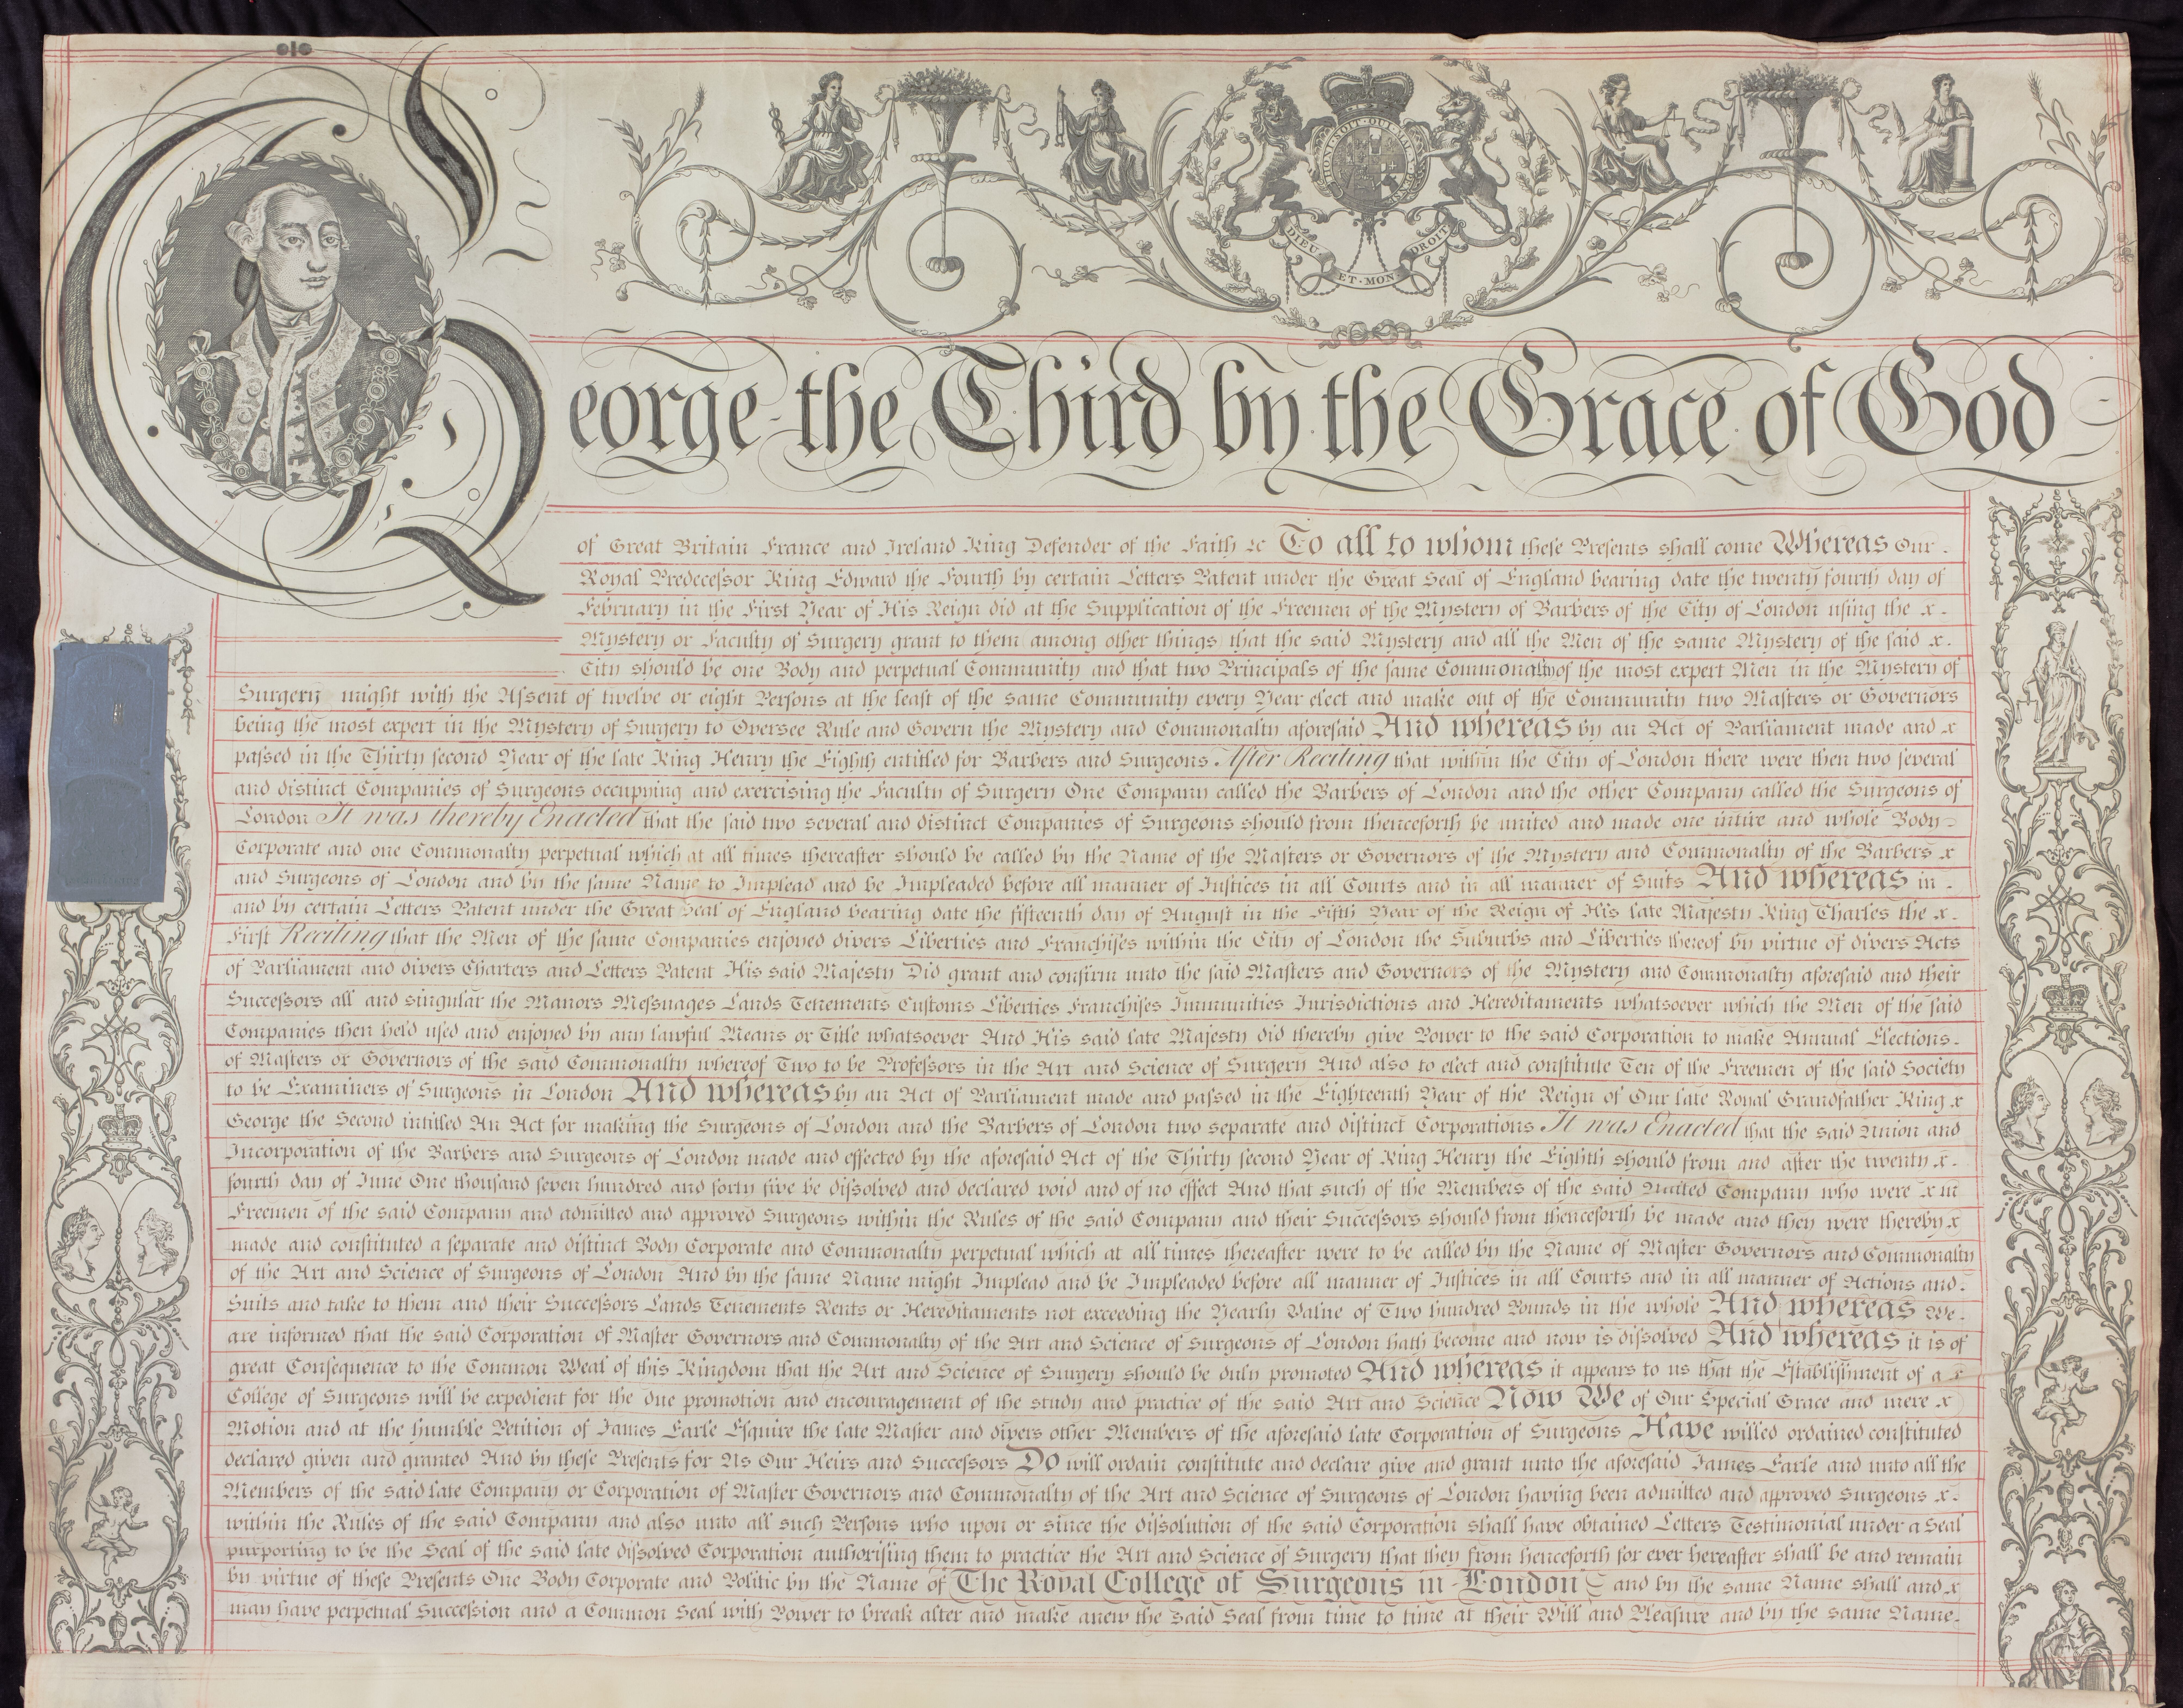 HONI · SOIT · QUI · MAL · Y · PENSE
DIEU · ET · MON · DROIT
George the Third by the Grace of God
of Great Britain France and Ireland King Defender of the Faith &c To all to whom these Presents shall come Whereas Our
Royal Predecessor King Edward the Fourth by certain Letters Patent under the Great Seal of England bearing date the twenty fourth day of
February in the First Year of His Reign did at the Supplication of the Freemen of the Mystery of Barbers of the City of London using the x
Mystery or Faculty of Surgery grant to them among other things that the said Mystery and all the Men of the same Mystery of the said x
City should be one Body and perpetual Community and that two Principals of the same Commonalty of the most expert Men in the Mystery of
Surgery might with the Assent of twelve or eight Persons at the least of the same Community every Year elect and make out of the Community two Masters or Governors
being the most expert in the Mystery of Surgery to Oversee Rule and Govern the Mystery and Commonalty aforesaid And whereas by an Act of Parliament made and x
passed in the Thirty second Year of the late King Henry the Eighth entitled for Barbers and Surgeons After Reciting that within the City of London there were then two several
and distinct Companies of Surgeons occupying and exercising the Faculty of Surgery One Company called the Barbers of London and the other Company called the Surgeons of
London It was thereby Enacted that the said two several and distinct Companies of Surgeons should from thenceforth be united and made one intire and whole Body
Corporate and one Commonalty perpetual which at all times thereafter should be called by the Name of the Masters or Governors of the Mystery and Commonalty of the Barbers x
and Surgeons of London and by the same Name to Implead and be Impleaded before all manner of Justices in all Courts and in all manner of Suits And whereas in
and by certain Letters Patent under the Great Seal of England bearing date the fifteenth day of August in the Fifth Year of the Reign of His late Majesty King Charles the x
First Reciting that the Men of the same Companies enjoyed divers Liberties and Franchises within the City of London the Suburbs and Liberties thereof by virtue of divers Acts
of Parliament and divers Charters and Letters Patent His said Majesty Did grant and confirm unto the said Masters and Governors of the Mystery and Commonalty aforesaid and their
Successors all and singular the Manors Messuages Lands Tenements Customs Liberties Franchises Immunities Jurisdictions and Hereditaments whatsoever which the Men of the said
Companies then held used and enjoyed by any lawful Means or Title whatsoever And His said late Majesty did thereby give Power to the said Corporation to make Annual Elections
of Masters or Governors of the said Commonalty whereof Two to be Professors in the Art and Science of Surgery And also to elect and constitute Ten of the Freemen of the said Society
to be Examiners of Surgeons in London And whereas by an Act of Parliament made and passed in the Eighteenth Year of the Reign of Our late Royal Grandfather King x
George the Second intitled An Act for making the Surgeons of London and the Barbers of London two separate and distinct Corporations It was Enacted that the said Union and
Incorporation of the Barbers and Surgeons of London made and effected by the aforesaid Act of the Thirty second Year of King Henry the Eighth should from and after the twenty x
fourth day of June One thousand seven hundred and forty five be dissolved and declared void and of no effect And that such of the Members of the said United Company who were x
Freemen of the said Company and admitted and approved Surgeons within the Rules of the said Company and their Successors should from thenceforth be made and they were thereby x
made and constituted a separate and distinct Body Corporate and Commonalty perpetual which at all times thereafter were to be called by the Name of Master Governors and Commonality
of the Art and Science of Surgeons of London And by the same Name might Implead and be Impleaded before all manner of Justices in all Courts and in all manner of Actions and
Suits and take to them and their Successors Lands Tenements Rents or Hereditaments not exceeding the Yearly Value of Two hundred Pounds in the whole And whereas We
are informed that the said Corporation of Master Governors and Commonalty of the Art and Science of Surgeons of London hath become and now is dissolved And whereas it is of
great Consequence to the Common Weal of this Kingdom that the Art and Science of Surgery should be duly promoted And whereas it appears to us that the Establishment of a x
College of Surgeons will be expedient for the due promotion and encouragement of the study and practice of the said Art and Science Now We of Our Special Grace and mere x
Motion and at the humble Petition of James Earle Esquire the late Master and divers other Members of the aforesaid late Corporation of Surgeons Have willed ordained constituted
declared given and granted And by these Presents for Us Our Heirs and Successors Do will ordain constitute and declare give and grant unto the aforesaid James Earle and unto all the
Members of the said late Company or Corporation of Master Governors and Commonalty of the Art and Science of Surgeons of London having been admitted and approved Surgeons x
within the Rules of the said Company and also unto all such Persons who upon or since the dissolution of the said Corporation shall have obtained Letters Testimonial under a Seal
purporting to be the Seal of the said late dissolved Corporation authorising them to practice the Art and Science of Surgery that they from henceforth for ever hereafter shall be and remain
by virtue of these Presents One Body Corporate and Politic by the Name of The Royal College of Surgeons in London and by the same Name shall and x
may have perpetual Succession and a Common Seal with Power to break alter and make anew the said Seal from time to time at their Will and Pleasure and by the same Name